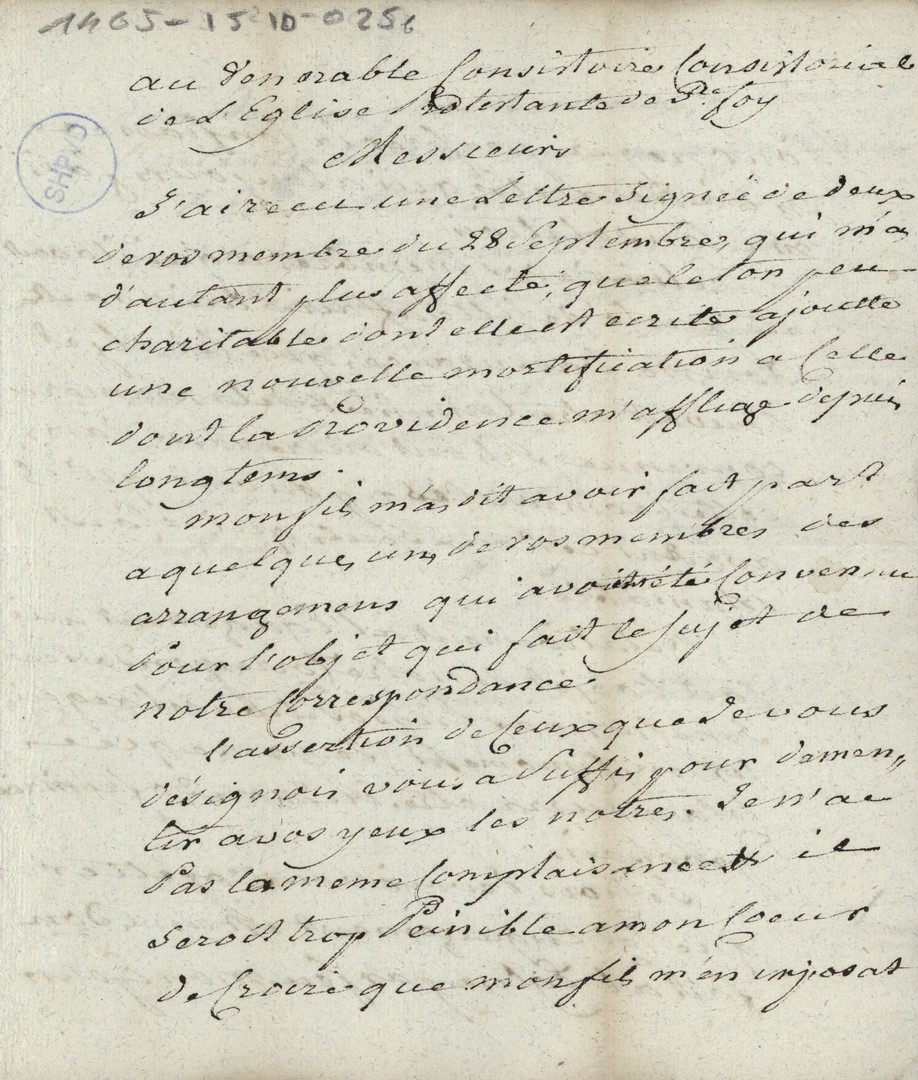 1405-15 10-0256
SHPVD
au Venerable Consistoire Consistorial
de L'Eglise Protestante de Ste foy
Messieurs
J'ai recu une Lettre Signée de deux
de vos membre du 28 Septembre, qui m'a
d'autant plus affecté, que le ton peu
charitable dont elle est ecrite ajoutte
une nouvelle mortification a Celle
dont la Providence m'afflige depuis
longtems.
mon fils m'a dit avoir fait part
a quelques uns de vos membres des
arrangemens qui avoit été Convenue
Pour l'objet qui fait le sujet de
notre Correspondance.
l'assertion de Ceux que Je vous
désignois vous a suffis pour demen„
tir a vos yeux les notres. Je n'ai
Pas la meme Complaisance il
seroit trop Peinible a mon Coeur
de Croire que mon fils m'en imposat